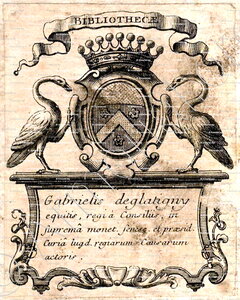 BIBLIOTHECÆ
Gabrielis deglatigny
equitis, regi à Consiliis, in
supremâ monet. senat. et præsid.
Curiâ lugd. regiarum Causarum
actoris.